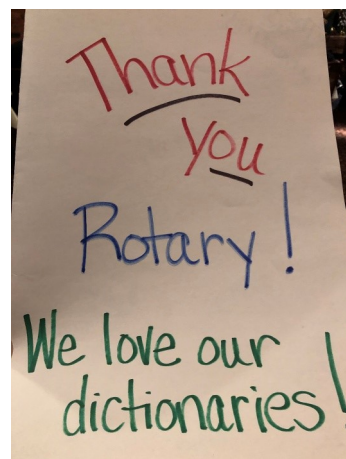 Thank
you
Rotary!
We love our
dictionaries!